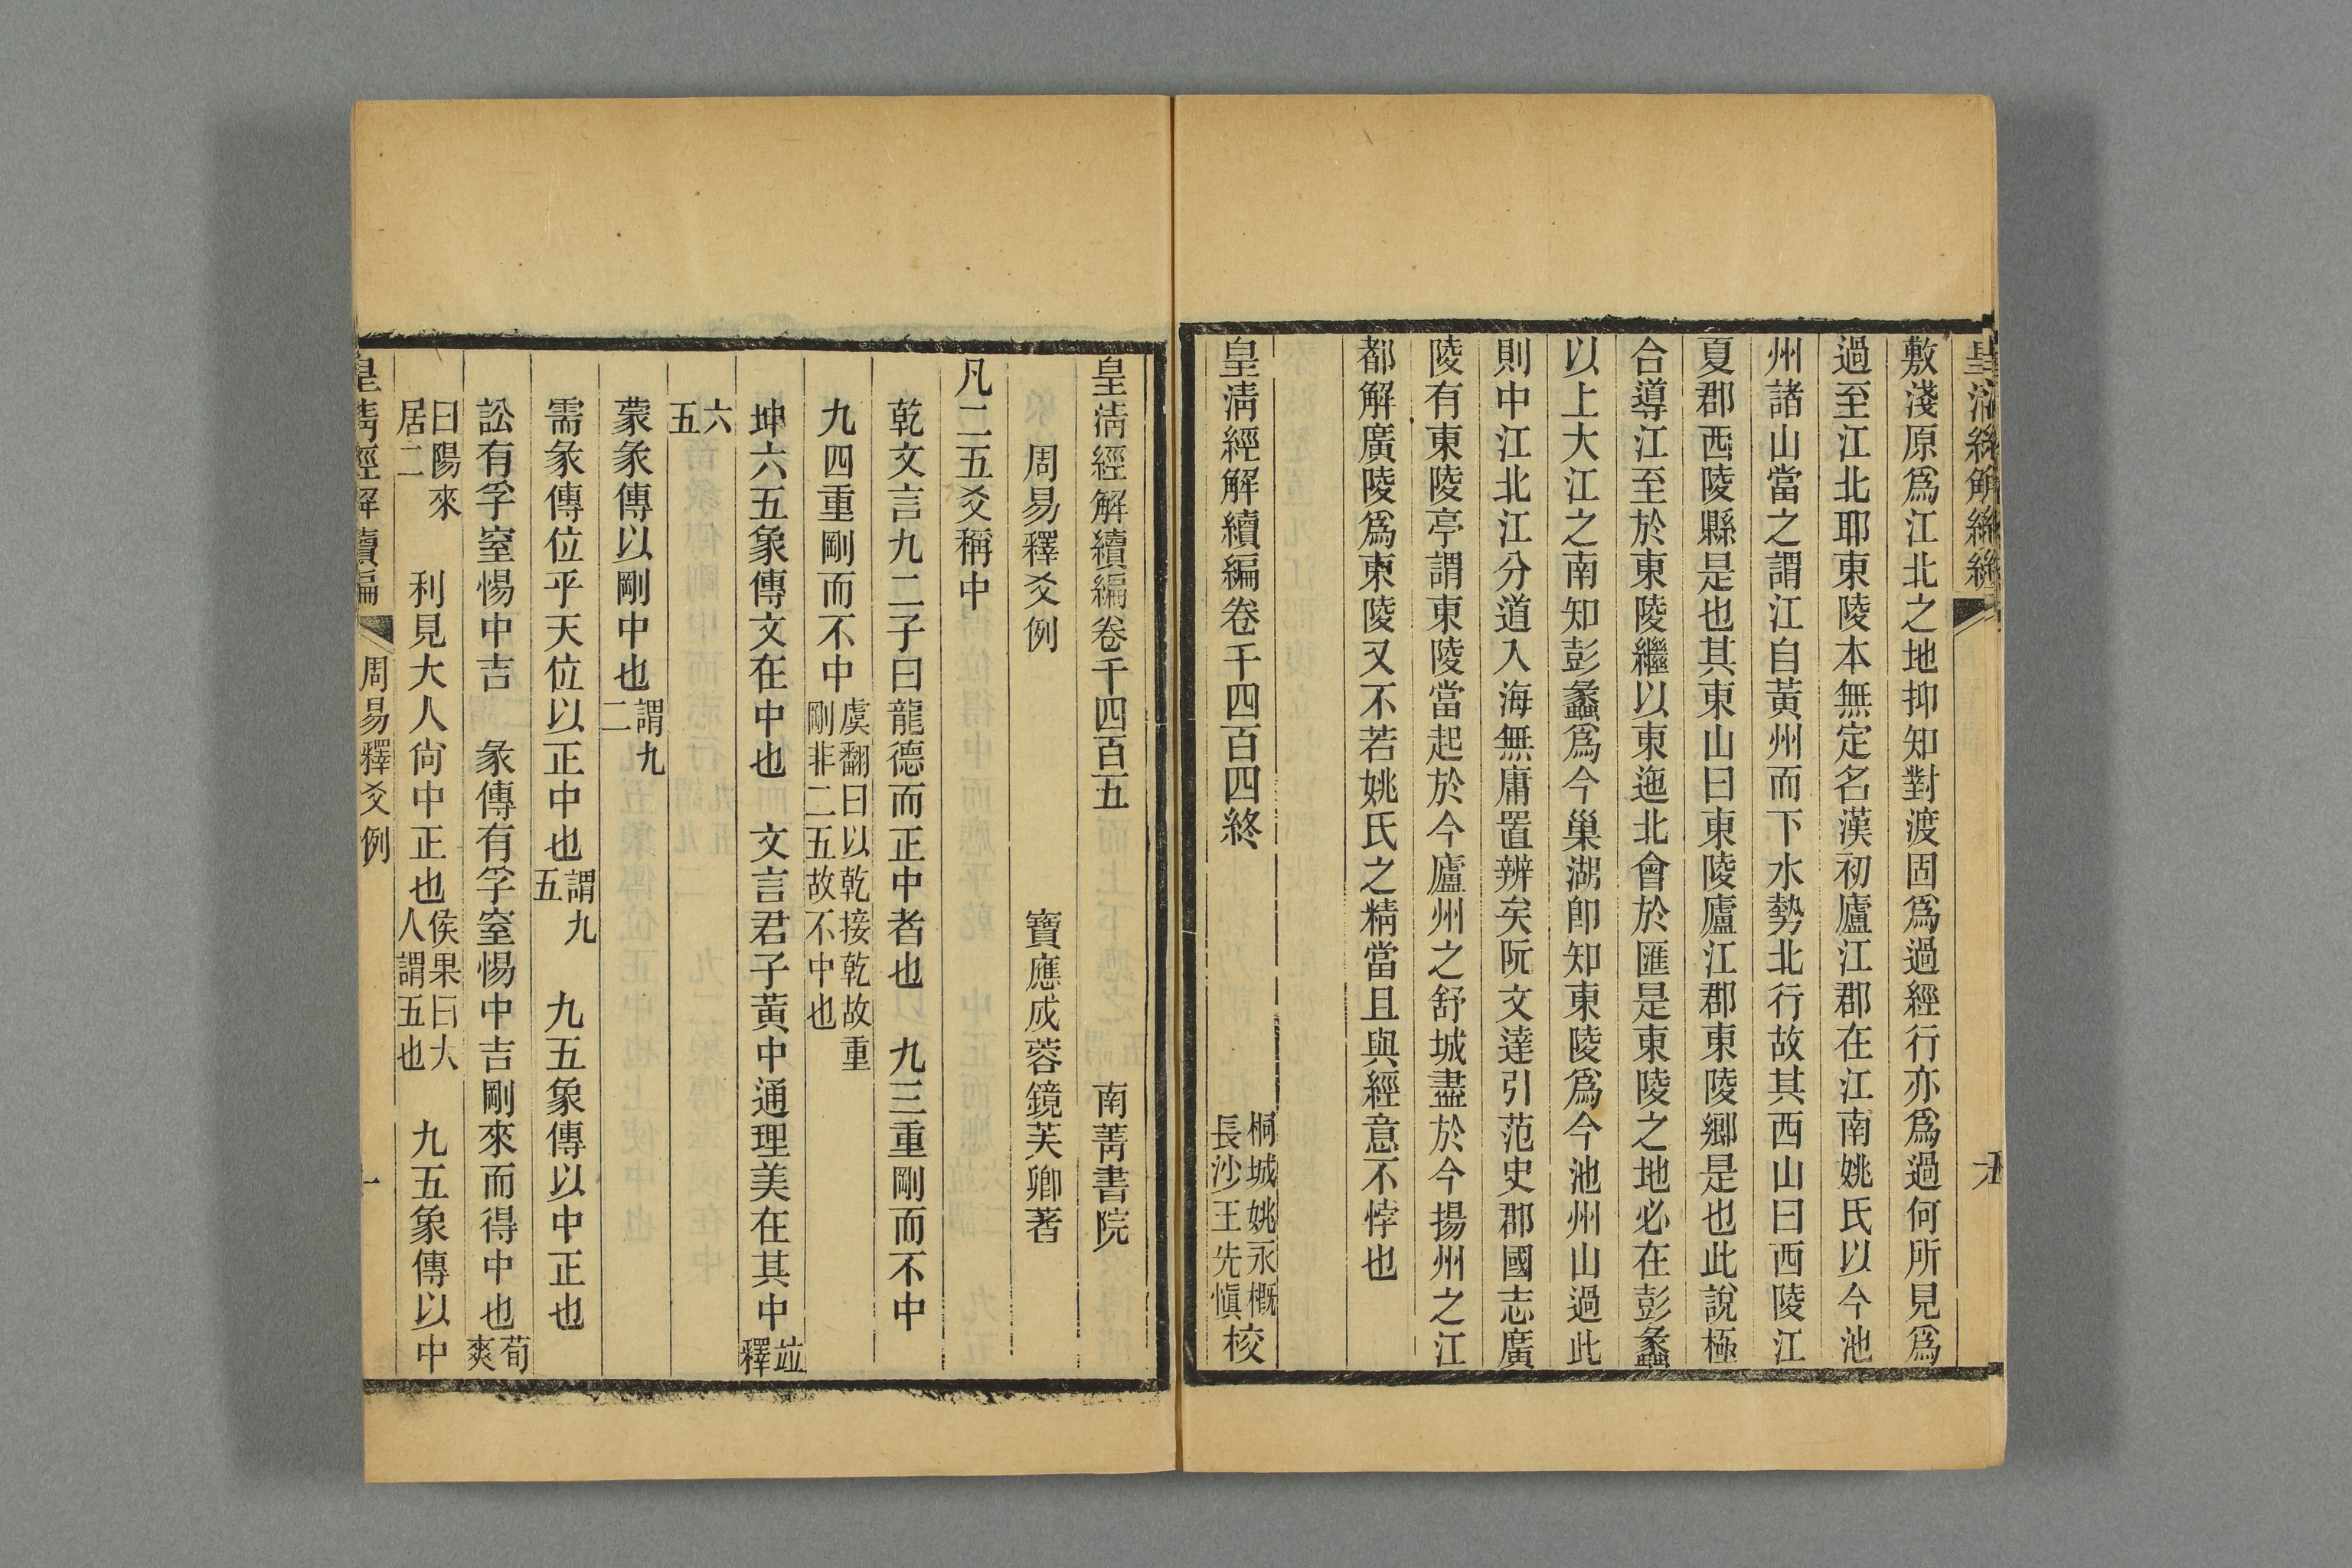 敷淺原爲江北之地抑知對渡固爲過經行亦爲過何所見爲
過至江北耶東陵本無定名漢初廬江郡在江南姚氏以今池
州諸山當之謂江自黃州而下水勢北行故其西山曰西陵江
夏郡西陵縣是也其東山曰東陵廬江郡東陵鄉是也此說極
合導江至於東陵繼以東迤北會於匯是東陵之地必在彭蠡
以上大江之南知彭蠡爲今巢湖卽知東陵爲今池州山過此
則中江北江分道入海無庸置辨矣阮文達引范史郡國志廣
陵有東陵亭謂東陵當起於今廬州之舒城盡於今揚州之江
都解廣陵爲東陵又不若姚氏之精當且與經意不悖也
皇淸經解續編卷千四百四終
桐城姚永概
長沙王先愼
校
皇淸經解續編卷千四百五
南菁書院
周易釋爻例
寶應成蓉鏡芙卿著
凡二五爻稱中
乾文言九二子曰龍德而正中者也 九三重剛而不中
九四重剛而不中虞翻曰以乾接乾故重剛非二五故不中也
坤六五象傳文在中也 文言君子黃中通理美在其中竝釋
六五
蒙彖傳以剛中也謂九二
需彖傳位乎天位以正中也謂九五 九五象傳以中正也
訟有孚窒惕中吉 彖傳有孚窒惕中吉剛來而得中也荀爽
曰陽來居二 利見大人尙中正也侯果曰大人謂五也 九五象傳以中
皇淸經解續編
周易釋爻例
一